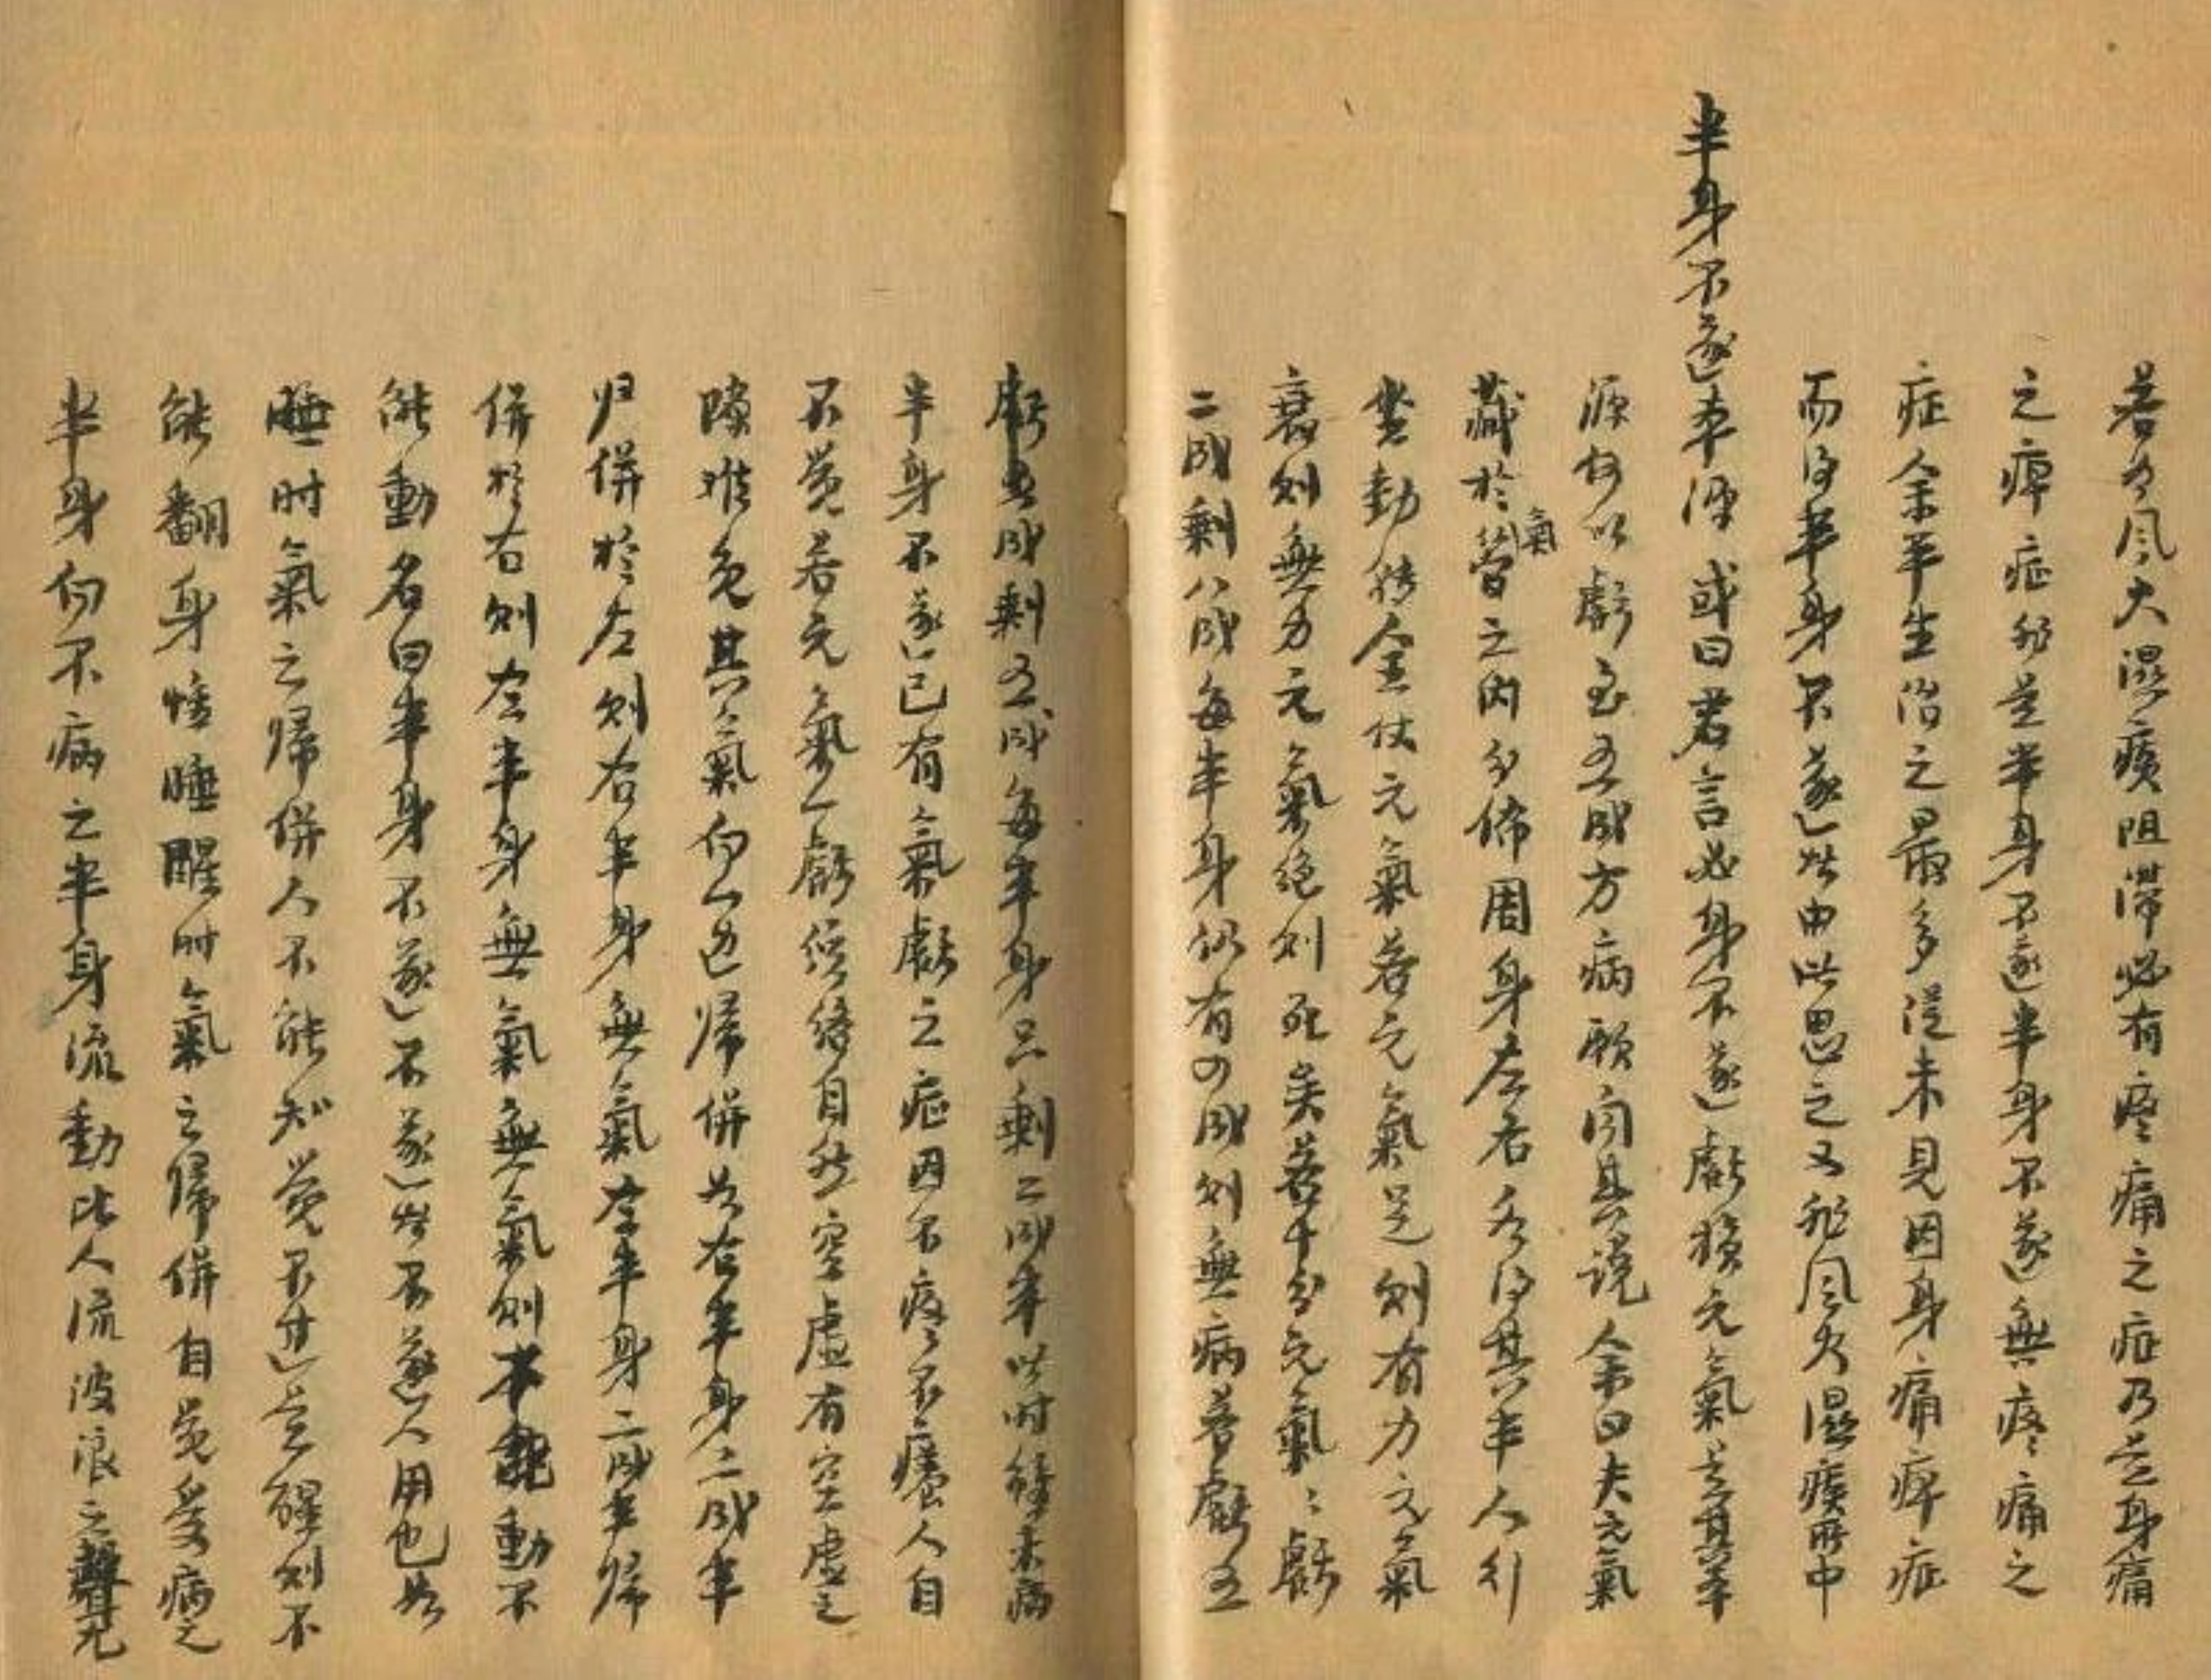 若為風火濕痰阻滯必有疼痛之症乃是身痛
之痺症非是半身不遂半身不遂無疼痛之
症余平生治之最多從未見因身痛痺症
而得半身不遂者由此思之又非風火濕痰所中
半身不遂本源或曰君言必身不遂虧損元氣是其本
源何以虧至五成方病願聞其說余曰夫元氣
藏於氣管之內分佈周身左右各得其半人行
坐動轉全仗元氣若元氣足則有力元氣
衰則無力元氣絕則死矣若十分元氣〻虧
二成剩八成每半身仍有四成則無病若虧五
虧五成剩五成每半身只剩二成半此時雖未病
半身不遂已有氣虧之症因不疼不癢人自
不覺若元氣一虧經絡自然空虛有空虛之
隙难免其氣向一边歸併如右半身二成半
归併於左則右半身無氣左半身二成半歸
併於右則左半身無氣無氣則不能動不
能動名曰半身不遂不遂者不遂人用也如
睡时氣之歸併人不能知覺不过是醒則不
能翻身惟睡醒时氣之歸併自覺受病之
半身向不病之半身流動比人流波浪之聲尤